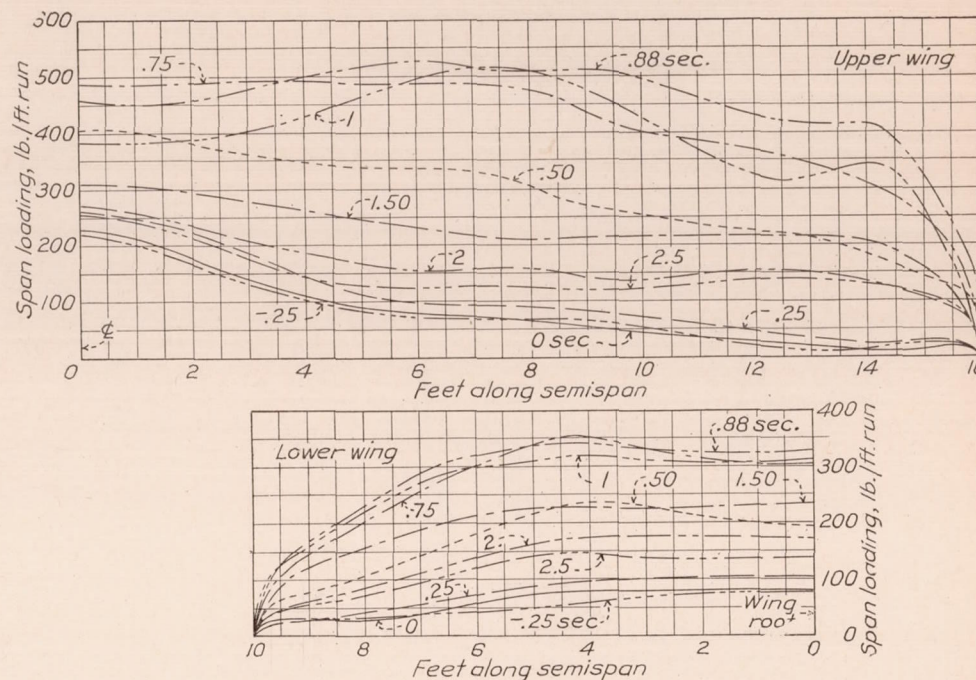 600
500
400
300
200
100
Span loading, lb./ft.run
.75
.88 sec.
Upper wing
1
.50
1.50
2
2.5
-.25
0 sec
.25
℄
0 2 4 6 8 10 12 14 16
Feet along semispan
Lower wing
.88 sec.
1
.50
1.50
.75
2
2.5
.25
0
-.25 sec
Wing root
400
300
200
100
0
Span loading, lb./ft.run
10 8 6 4 2 0
Feet along semispan